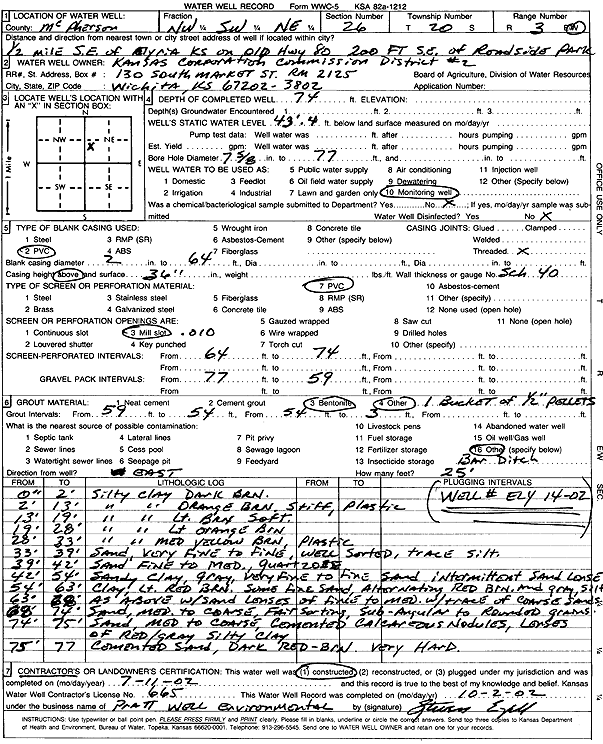 WATER WELL RECORD Form WWC-5 KSA 82a-1212
1 LOCATION OF WATER WELL: Fraction Section Number Township Number Range Number
County: McPherson NW ¼ SW ¼ NE ¼ 26 T 20 S R 3 E/W
Distance and direction from nearest town or city street address of well if located within city?
1/2 mile S.E. of Elyria KS on Old Hwy 80 200 FT S.E. of Roadside Park
2 WATER WELL OWNER: Kansas Corporation Commission District #2
RR#, St. Address, Box # : 130 South Market St. RM 2125 Board of Agriculture, Division of Water Resources
City, State, ZIP Code : Wichita KS 67202-3802 Application Number:
3 LOCATE WELL'S LOCATION WITH AN "X" IN SECTION BOX:
N
NW NE
X
W E
SW SE
S
1 Mile
4 DEPTH OF COMPLETED WELL 74 ft. ELEVATION:
Depth(s) Groundwater Encountered 1. ft. 2. ft. 3. ft.
WELL'S STATIC WATER LEVEL 43'.4 ft. below land surface measured on mo/day/yr
Pump test data: Well water was ft. after hours pumping gpm
Est. Yield gpm: Well water was ft. after hours pumping gpm
Bore Hole Diameter 7 5/8 in. to 77 ft., and in. to ft.
WELL WATER TO BE USED AS: 5 Public water supply 8 Air conditioning 11 Injection well
1 Domestic 3 Feedlot 6 Oil field water supply 9 Dewatering 12 Other (Specify below)
2 Irrigation 4 Industrial 7 Lawn and garden only 10 Monitoring well
Was a chemical/bacteriological sample submitted to Department? Yes No X ; If yes, mo/day/yr sample was submitted
Water Well Disinfected? Yes No X
5 TYPE OF BLANK CASING USED: 5 Wrought iron 8 Concrete tile CASING JOINTS: Glued Clamped
1 Steel 3 RMP (SR) 6 Asbestos-Cement 9 Other (specify below) Welded
2 PVC 4 ABS 7 Fiberglass Threaded X
Blank casing diameter 2 in. to 64 ft., Dia in. to ft., Dia in. to ft.
Casing height above land surface 36" in., weight lbs./ft. Wall thickness or gauge No. Sch. 40
TYPE OF SCREEN OR PERFORATION MATERIAL: 7 PVC 10 Asbestos-cement
1 Steel 3 Stainless steel 5 Fiberglass 8 RMP (SR) 11 Other (specify)
2 Brass 4 Galvanized steel 6 Concrete tile 9 ABS 12 None used (open hole)
SCREEN OR PERFORATION OPENINGS ARE: 5 Gauzed wrapped 8 Saw cut 11 None (open hole)
1 Continuous slot 3 Mill slot .010 6 Wire wrapped 9 Drilled holes
2 Louvered shutter 4 Key punched 7 Torch cut 10 Other (specify)
SCREEN-PERFORATED INTERVALS: From 64 ft. to 74 ft., From ft. to ft.
From ft. to ft., From ft. to ft.
GRAVEL PACK INTERVALS: From 77 ft. to 59 ft., From ft. to ft.
From ft. to ft., From ft. to ft.
6 GROUT MATERIAL: 1 Neat cement 2 Cement grout 3 Bentonite 4 Other 1 Bucket of 1/2" Pellets
Grout Intervals: From 59 ft. to 54 ft., From 54 ft. to 3 ft., From ft. to ft.
What is the nearest source of possible contamination: 10 Livestock pens 14 Abandoned water well
1 Septic tank 4 Lateral lines 7 Pit privy 11 Fuel storage 15 Oil well/Gas well
2 Sewer lines 5 Cess pool 8 Sewage lagoon 12 Fertilizer storage 16 Other (specify below)
3 Watertight sewer lines 6 Seepage pit 9 Feedyard 13 Insecticide storage Bar Ditch
Direction from well? EAST How many feet? 25'
FROM TO LITHOLOGIC LOG FROM TO PLUGGING INTERVALS
0" 2' Silty Clay Dark BRN.
Well # EZY 14-02
2' 13' " " Orange BRN, Stiff, Plastic
13' 19' " " Lt. Brn Soft.
19' 28' " " Lt Orange Brn
28' 33' " " Med Yellow Brn, Plastic
33' 39' Sand, Very Fine to Fine, Well Sorted, trace silt.
39' 42' Sand Fine to Med., Quartzose
42' 54' Sandy Clay, gray, Very Fine to Fine Sand, intermittent Sand Lense
54' 63' Clay, Lt Red Brn. Some Fine Sand, Alternating Red Brn. and gray, silt
63' 68 As Above w/Sand Lenses of Fine to Med. w/trace of Coarse Sand
68 74' Sand, Med. to Coarse, Fair Sorting, Sub-Angular to Rounded grains.
74' 75' Sand, Med to Coarse, Cemented Calcareous Nodules, Lenses
of Red/Gray Silty Clay
75' 77 Cemented Sand, Dark Red-Brn. Very Hard.
7 CONTRACTOR'S OR LANDOWNER'S CERTIFICATION: This water well was (1) constructed, (2) reconstructed, or (3) plugged under my jurisdiction and was
completed on (mo/day/year) 7-11-02 and this record is true to the best of my knowledge and belief. Kansas
Water Well Contractor's License No. 665 This Water Well Record was completed on (mo/day/yr) 10-2-02
under the business name of Pratt Well Environmental by (signature)
INSTRUCTIONS: Use typewriter or ball point pen. PLEASE PRESS FIRMLY and PRINT clearly. Please fill in blanks, underline or circle the correct answers. Send top three copies to Kansas Department
of Health and Environment, Bureau of Water, Topeka, Kansas 66620-0001. Telephone: 913-296-5545. Send one to WATER WELL OWNER and retain one for your records.
OFFICE USE ONLY
T
R
E/W
SEC
¼
¼
¼